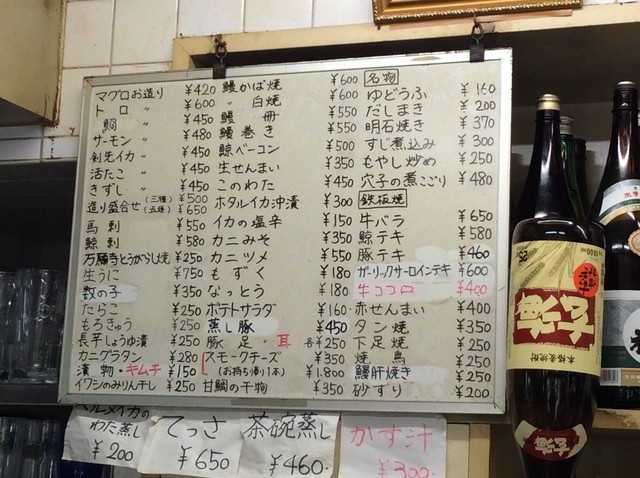 マグロお造り ¥420
トロ 〃 ¥600
鯛 〃 ¥450
サーモン 〃 ¥480
剣先イカ 〃 ¥450
活たこ 〃 ¥450
きずし 〃 ¥450
造り盛合せ (三種) ¥500
(五種) ¥650
馬刺 ¥550
鯨刺 ¥580
万願寺とうがらし焼 ¥250
生うに ¥750
数の子 ¥350
たらこ ¥250
もろきゅう ¥250
長芋しょうゆ漬 ¥250
カニグラタン ¥280
漬物・キムチ ¥150
イワシのみりん干し ¥250
鰻かば焼 ¥600
〃 白焼 ¥600
鰻冊 ¥550
鰻巻き ¥550
鯨ベーコン ¥500
生せんまい ¥350
このわた ¥450
ホタルイカ沖漬 ¥300
イカの塩辛 ¥150
カニみそ ¥350
カニツメ ¥550
もずく ¥180
なっとう ¥180
ポテトサラダ ¥160
蒸し豚 ¥450
豚足・耳 各¥250
スモークチーズ ¥350
(お持ち帰り1本) ¥1.800
甘鯛の干物 ¥350
名物
ゆどうふ ¥160
だしまき ¥200
明石焼き ¥370
すじ煮込み ¥300
もやし炒め ¥250
穴子の煮こごり ¥480
鉄板焼
牛バラ ¥650
鯨テキ ¥580
豚テキ ¥460
ガーリックサーロインテキ ¥600
牛ココロ ¥400
赤せんまい ¥400
タン焼 ¥350
下足焼 ¥250
焼鳥 ¥250
鰻肝焼き ¥250
砂ずり ¥200
ベルメイカの
わた蒸し
¥200
てっさ
¥650
茶碗蒸し
¥460.
かす汁
¥300.
本格麦焼酎
25
1800ml